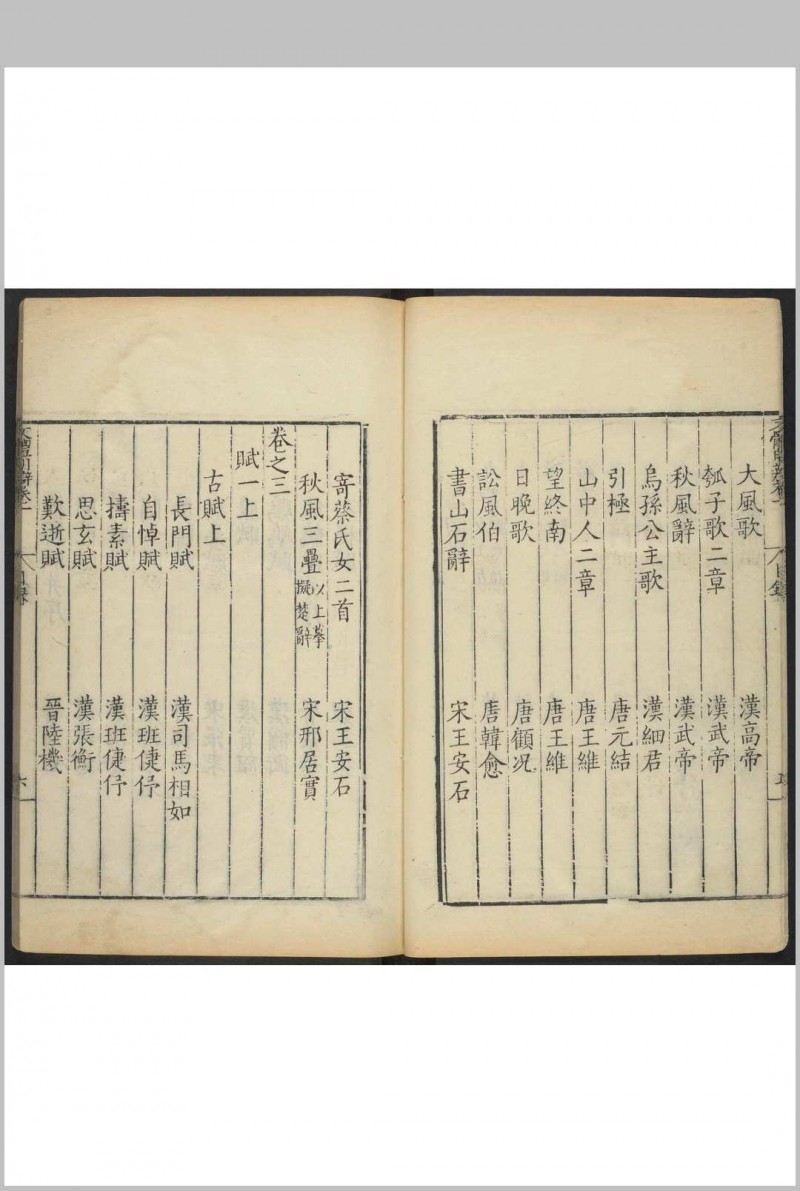 大風歌 漢高帝
瓠子歌二章 漢武帝
秋風辭 漢武帝
烏孫公主歌 漢細君
引極 唐元結
山中人二章 唐王維
望終南 唐王維
日晚歌 唐顧况
訟風伯 唐韓愈
書山石辭 宋王安石
寄蔡氏女二首 宋王安石
秋風三疊 以上摹擬楚辭 宋邢居實
卷之三
賦一上
古賦上
長門賦 漢司馬相如
自悼賦 漢班倢伃
擣素賦 漢班倢伃
思玄賦 漢張衡
歎逝賦 晉陸機
目錄
六